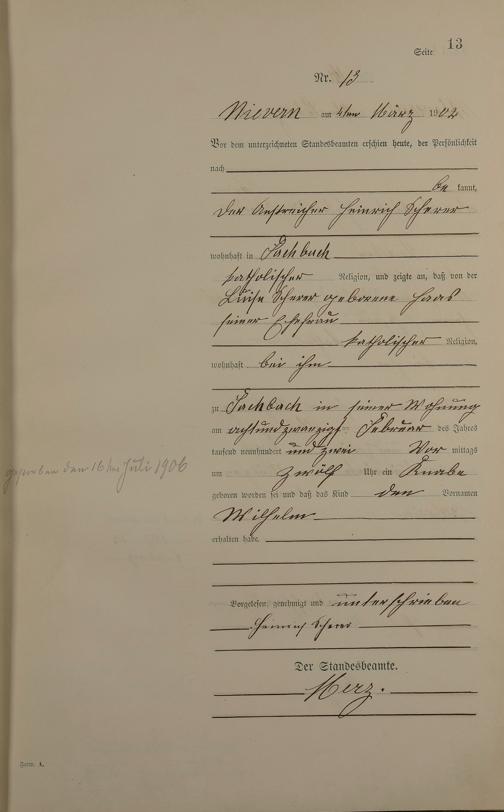 Seite 13
Nr. 13
Nievern am 4ten März 1902
Vor dem unterzeichneten Standesbeamten erschien heute, der Persönlichkeit
nach
be kannt,
der Anstreicher Heinrich Scherer
wohnhaft in Fachbach
katholischer Religion, und zeigte an, daß von der
Luise Scherer geborene Haas
seiner Ehefrau
katholischer Religion,
wohnhaft bei ihm
zu Fachbach in seiner Wohnung
am achtundzwanzigst Februar des Jahres
tausend neunhundert und zwei Vor mittags
um zwölf Uhr ein Knabe
geboren worden sei und daß das Kind den Vornamen
Wilhelm
erhalten habe.
gestorben den 16ten Juli 1906
Vorgelesen, genehmigt und unterschrieben
Heinrich Scherer
Der Standesbeamte.
Merz.
Form. A.